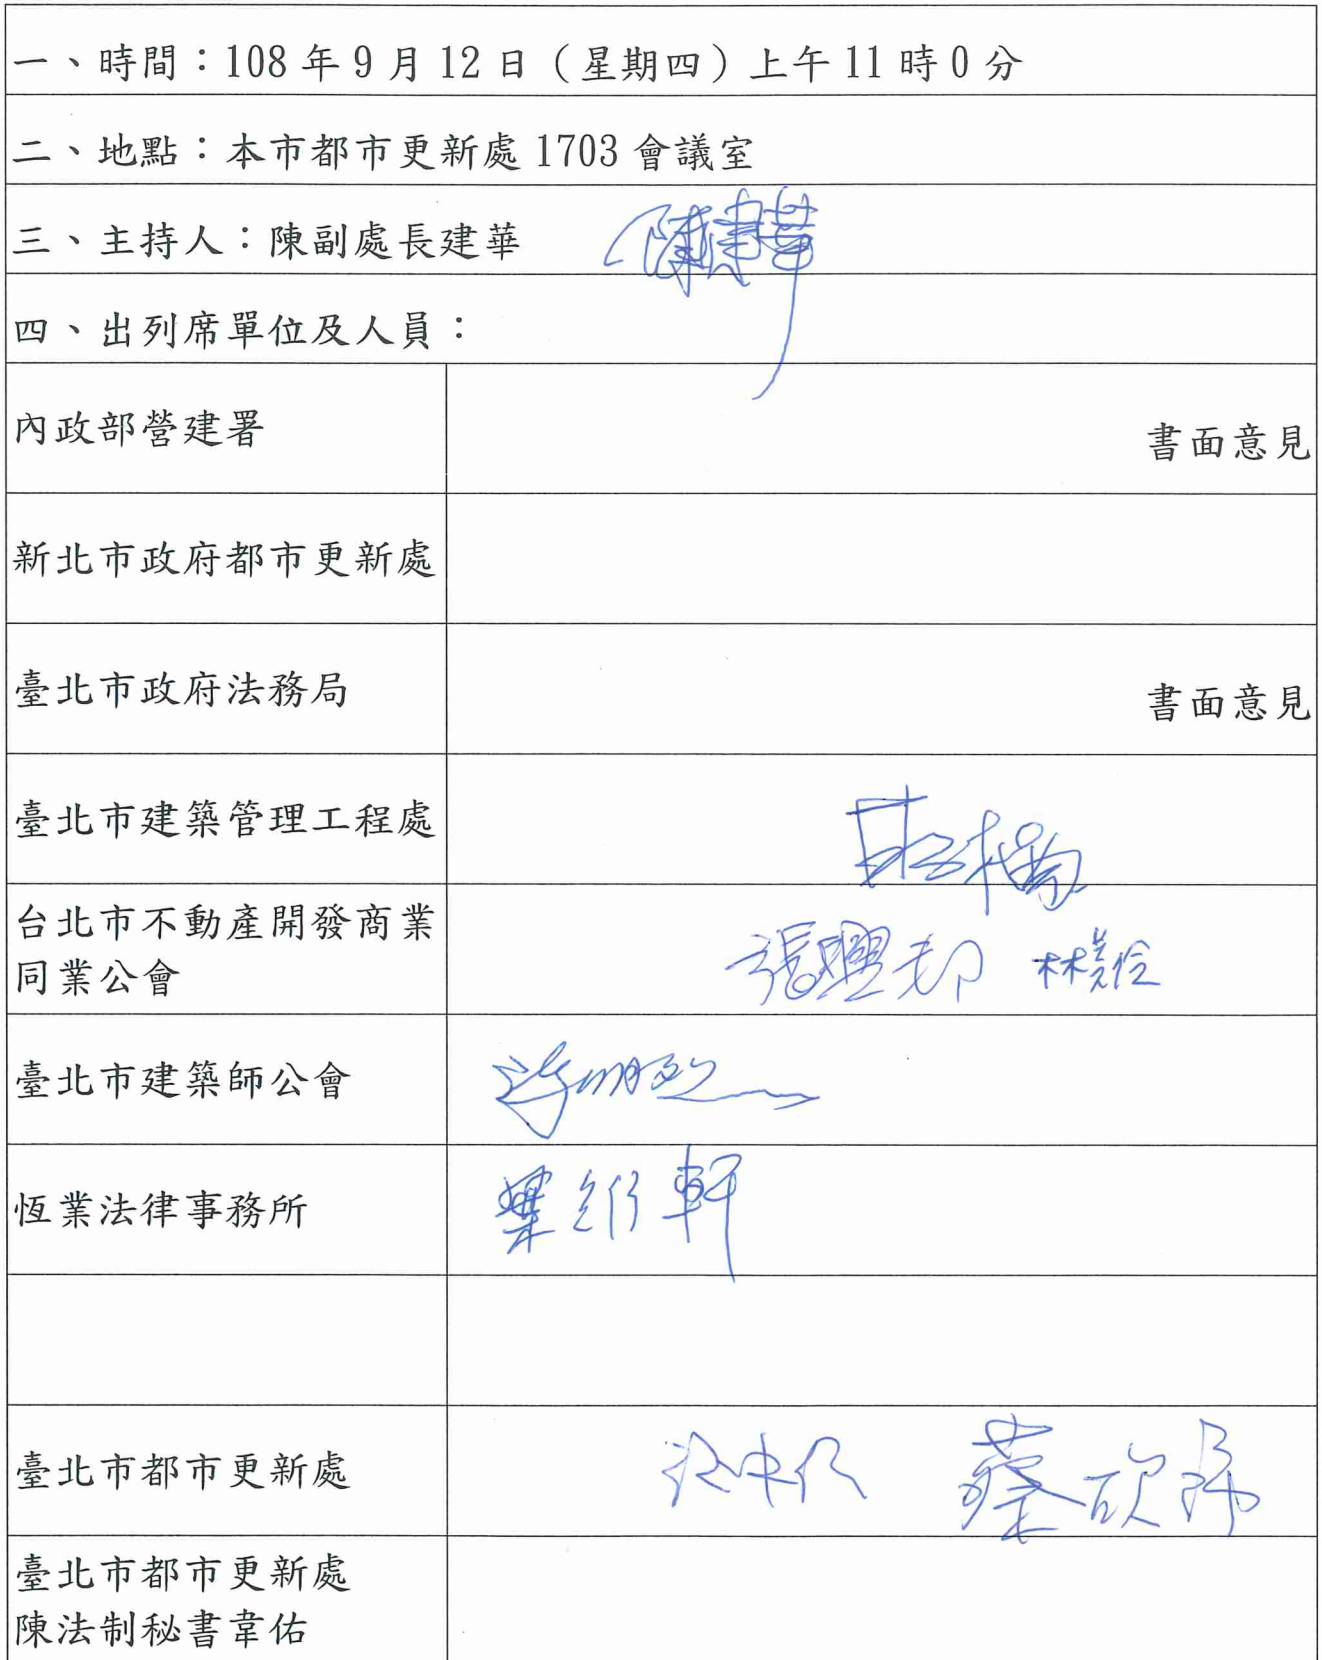 一、時間：108年9月12日（星期四）上午11時0分
二、地點：本市都市更新處1703會議室
三、主持人：陳副處長建華 陳建華
四、出列席單位及人員：
內政部營建署 書面意見
新北市政府都市更新處
臺北市政府法務局 書面意見
臺北市建築管理工程處
台北市不動產開發商業
同業公會 張興邦
臺北市建築師公會
恆業法律事務所
臺北市都市更新處
臺北市都市更新處
陳法制秘書韋佑